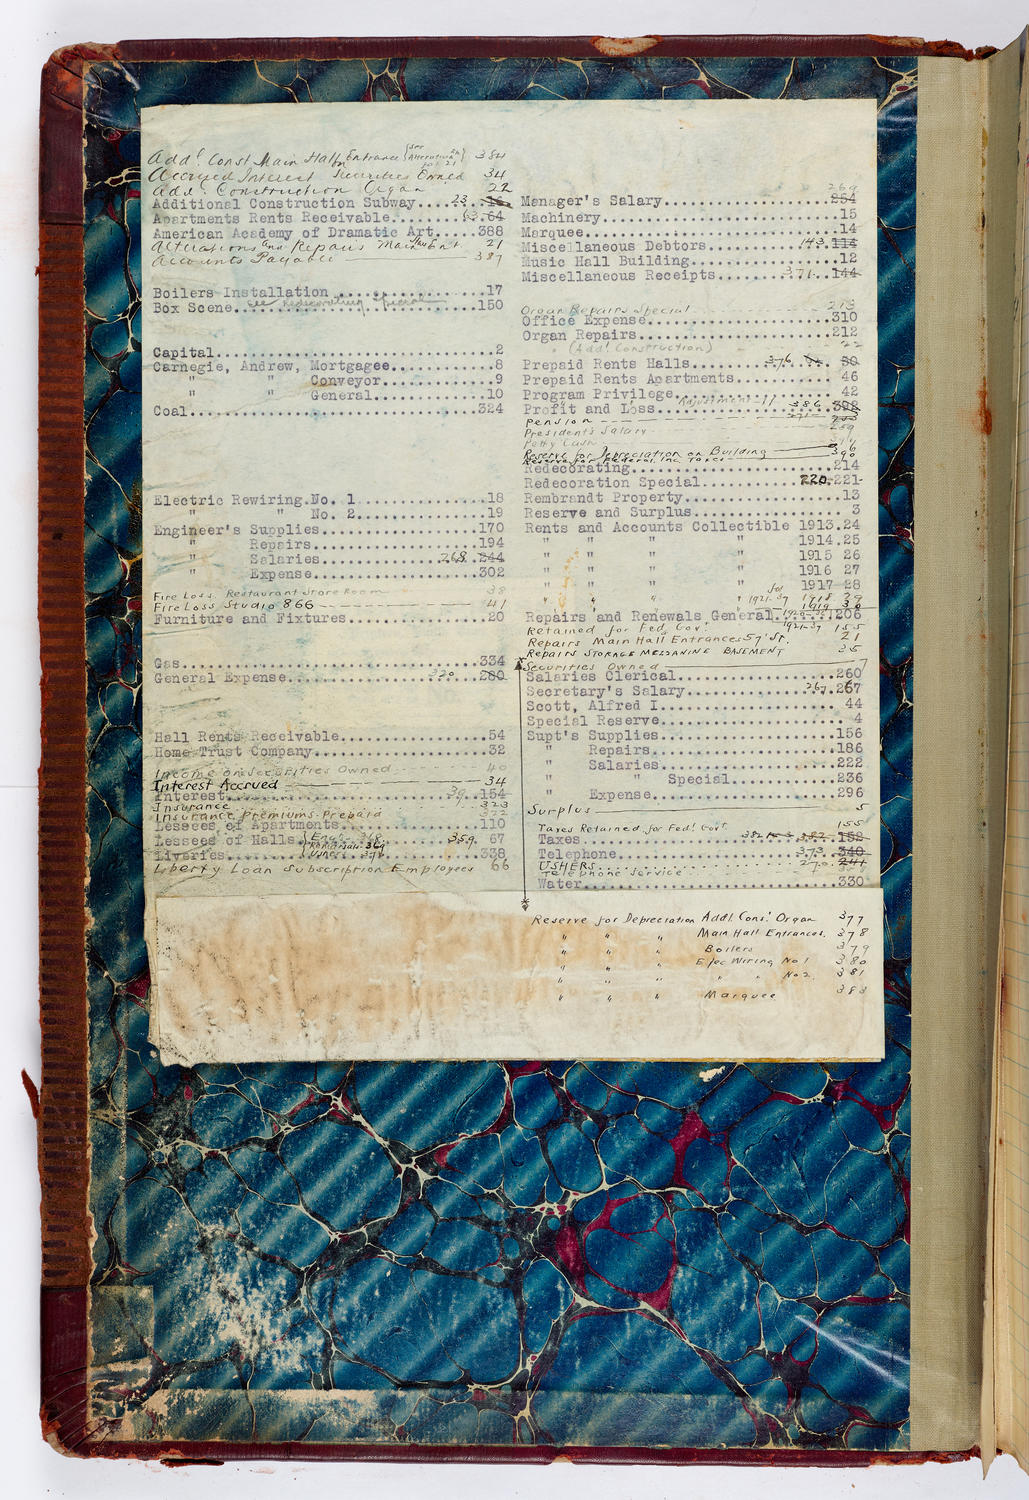 Add'l Const Main Hall Entrance {See Alteration &c fol 21} 384
Accrued Interest Securities Owned 34
Add. Construction Organ 22
Additional Construction Subway....23..16
Apartments Rents Receivable.......63.64
American Academy of Dramatic Art.....388
Alterations and Repairs Main Hall Ent 21
Accounts Payable 387
Boilers Installation ................17
Box Scene. see Redecorating Special .150
Capital..............................2
Carnegie, Andrew, Mortgagee..........8
" " Conveyor...........9
" " General............10
Coal.................................324
Electric Rewiring.No. 1..............18
" " No. 2..............19
Engineer's Supplies..................170
" Repairs...................194
" Salaries..........268.244
" Expense...................302
Fire Loss. Restaurant Store Room 38
Fire Loss Studio 866 41
Furniture and Fixtures...............20
Gas..................................334
General Expense................320...280
Hall Rents Receivable................54
Home Trust Company...................32
Income on Securities Owned 40
Interest Accrued 34
Interest.........................39.154
Insurance 323
Insurance Premiums-Prepaid 322
Lessees of Apartments................110
Lessees of Halls 359. 67
Liveries.............................338
Liberty Loan Subscription Employees 66
269
Manager's Salary.....................254
Machinery............................15
Marquee..............................14
Miscellaneous Debtors...........143.114
Music Hall Building..................12
Miscellaneous Receipts........371..144
Organ Repairs Special 213
Office Expense.......................310
Organ Repairs........................212
(Add'l Construction) 22
Prepaid Rents Halls..........376. 30
Prepaid Rents Apartments............. 46
Program Privilege.................... 42
Profit and Loss. Adjustment 386 398
Pension
President's Salary 259
Petty Cash
Reserve for Depreciation on Building
Reserve for Federal Inc Taxes 390
Redecorating.........................214
Redecoration Special.............220.221
Rembrandt Property...................13
Reserve and Surplus..................3
Rents and Accounts Collectible 1913.24
" " " " 1914.25
" " " " 1915 26
" " " " 1916 27
" " " " 1917 28
" " " " 1921-37 1918 29
1919 30
Repairs and Renewals General........206
Retained for Fed. Gov't 1921-37 155
Repairs Main Hall Entrances 57' St. 21
Repairs STORAGE MEZZANINE BASEMENT 35
Securities Owned 7
Salaries Clerical....................260
Secretary's Salary..............267.267
Scott, Alfred I...................... 44
Special Reserve...................... 4
Supt's Supplies......................156
" Repairs........................186
" Salaries.......................222
" " Special..............236
" Expense........................296
Surplus 5
Taxes Retained for Fed'l Gov't 155
Taxes..................382 153 382..152
Telephone.....................373..340
USHERS 270. 241
Telephone Service
Water................................330
Reserve for Depreciation Addl. Cons' Organ 377
" " " Main Hall Entrances. 378
" " " Boilers 379
" " " Elec Wiring No 1 380
" " " " " No 2. 381
" " " Marquee 383